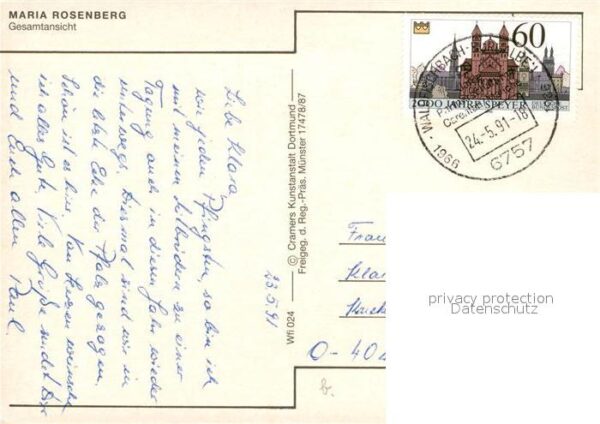 MARIA ROSENBERG
Gesamtansicht
Liebe Klara,
wie jeden Pfingsten, so bin ich
mit meinen Mitbrüdern zu einer
Tagung auch in diesem Jahr wieder
unterwegs. Diesmal sind wir in
die letzte Ecke der Pfalz gezogen.
Schön ist es hier. Von Herzen wünsche
ist alles Gute. Viele Grüße sendet Dir
und Euch allen Paul
23.5.91
Wfl 024
© Cramers Kunstanstalt Dortmund
Freigeg. d. Reg.-Präs. Münster 17478/87
60
2000 JAHRE SPEYER
DEUTSCHE BUNDESPOST
WALDFISCHBACH-BURGALBEN
24.-5.91-18
1966
6757
Frau
Klar
O-404
b.
privacy protection
Datenschutz